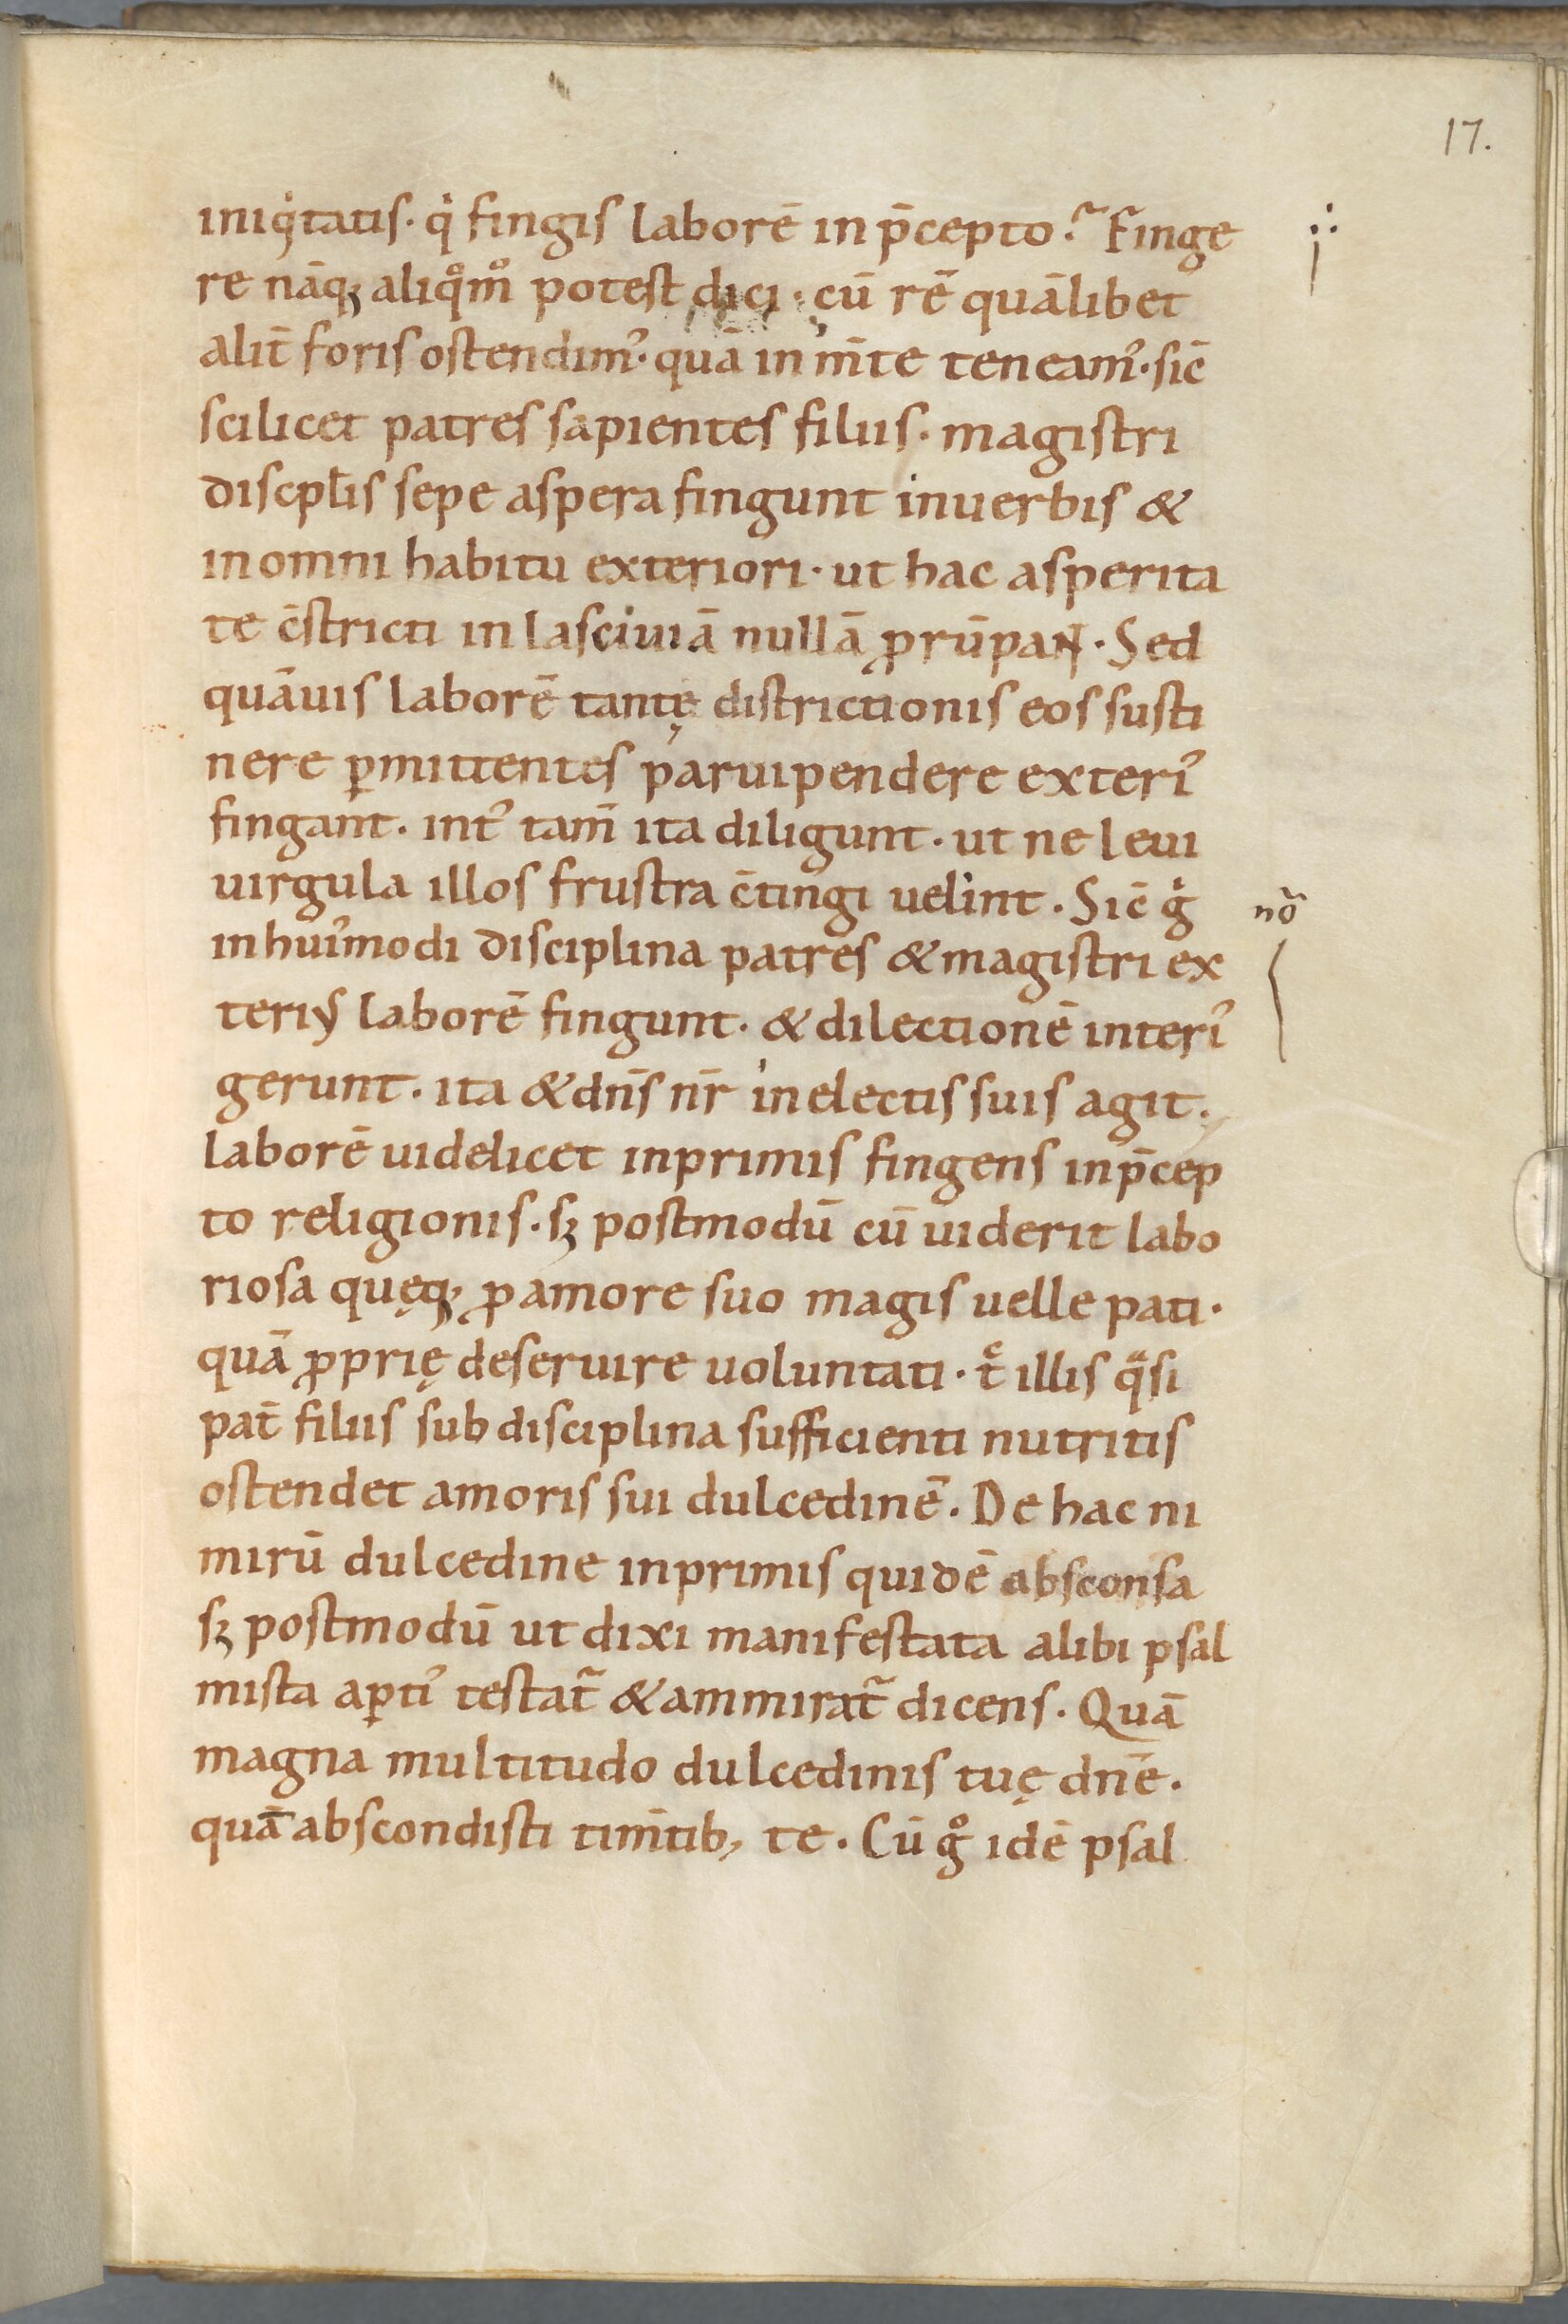 17.
iniqͥtatis· qͥ fingis laborē in p̄cepto? Finge
re nāq; aliqͦmͦ potest dici· cū rē quālibet
alit̄ foris ostendimꝰ· quā in m̄te teneamꝰ· sic̄
scilicet patres sapientes filiis· magistri
discpl̄is sepe aspera fingunt in uerbis &
in omni habitu exteriori· ut hac asperita
te c̄stricti in lasciuiā nullā ꝓrūpaNt· Sed
quāuis laborē tantę districtionis eos susti
nere ꝑmittentes paruipendere exteriꝰ
fingant· intꝰ tam̄ ita diligunt· ut ne leui
uirgula illos frustra c̄tingi uelint· Sic̄ gͥ
nō
in huiꝰmodi disciplina patres & magistri ex
teriꝰ laborē fingunt· & dilectionē interiꝰ
gerunt· ita & dn̄s nr̄ in electis suis agit·
laborē uidelicet inprimis fingens in p̄cep
to religionis· s; postmodū cū uiderit labo
riosa quęq; ꝓ amore suo magis uelle pati·
quā ꝓprię deseruire uoluntati· tͨ illis qᵃsi
pat̄ filiis sub disciplina sufficienti nutritis
ostendet amoris sui dulcedinē· De hac ni
mirū dulcedine inprimis quidē absconsa
s; postmodū ut dixi manifestata alibi psal
mista aꝑtiꝰ testat̃ & ammirat̃ dicens· Quā
magna multitudo dulcedinis tuę dn̄e·
quā abscondisti tim̄tib; te· Cū gͦ idē psal